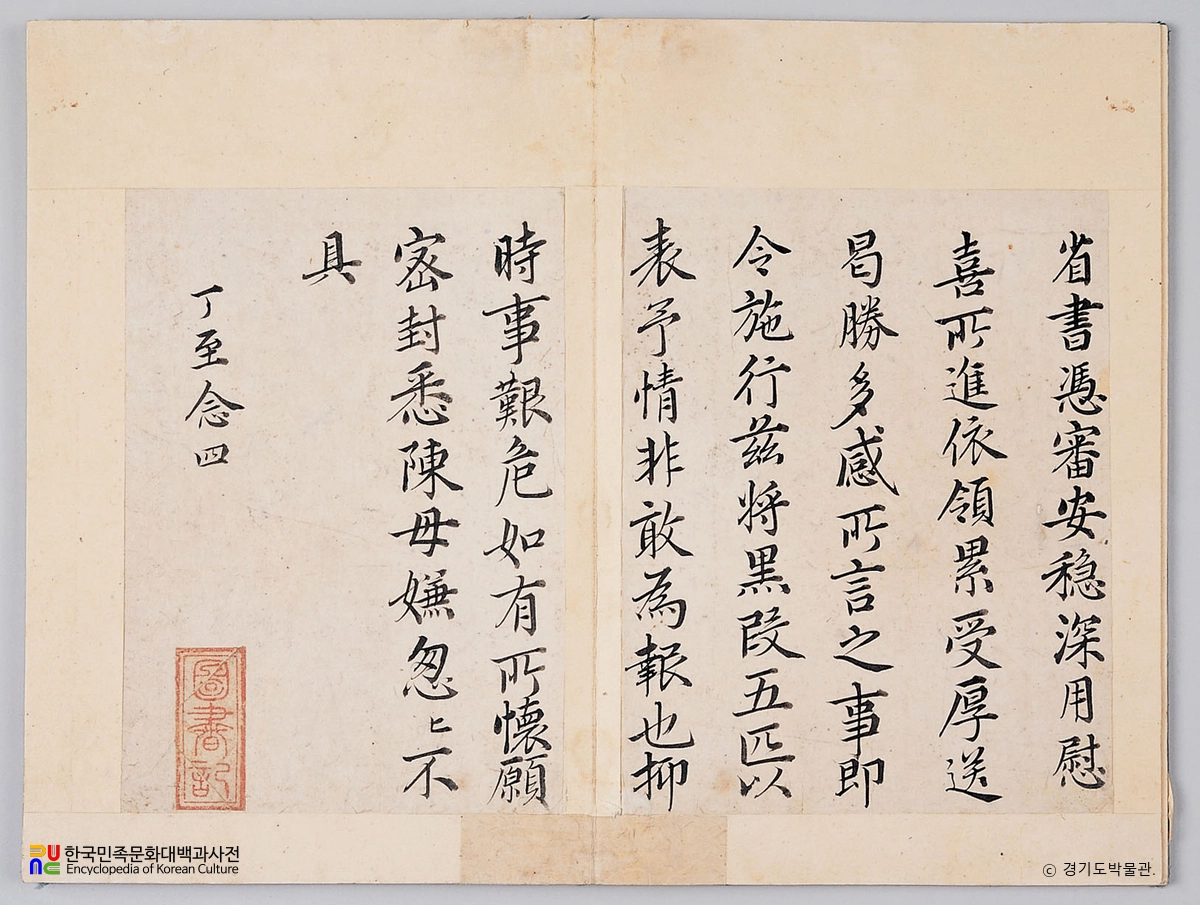 省書憑審安穩深用慰
喜所進依領累受厚送
曷勝多感所言之事即
令施行茲将黑段五匹以
表予情非敢為報也抑
時事艱危如有所懷願
密封悉陳毋嫌忽〻不
具
丁至念四
圖書記
한국민족문화대백과사전
Encyclopedia of Korean Culture
© 경기도박물관.